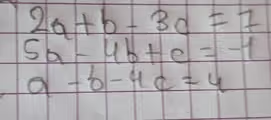 2a + b - 3c = 7
5a - 4b + c = -1
a - b - 4c = 4